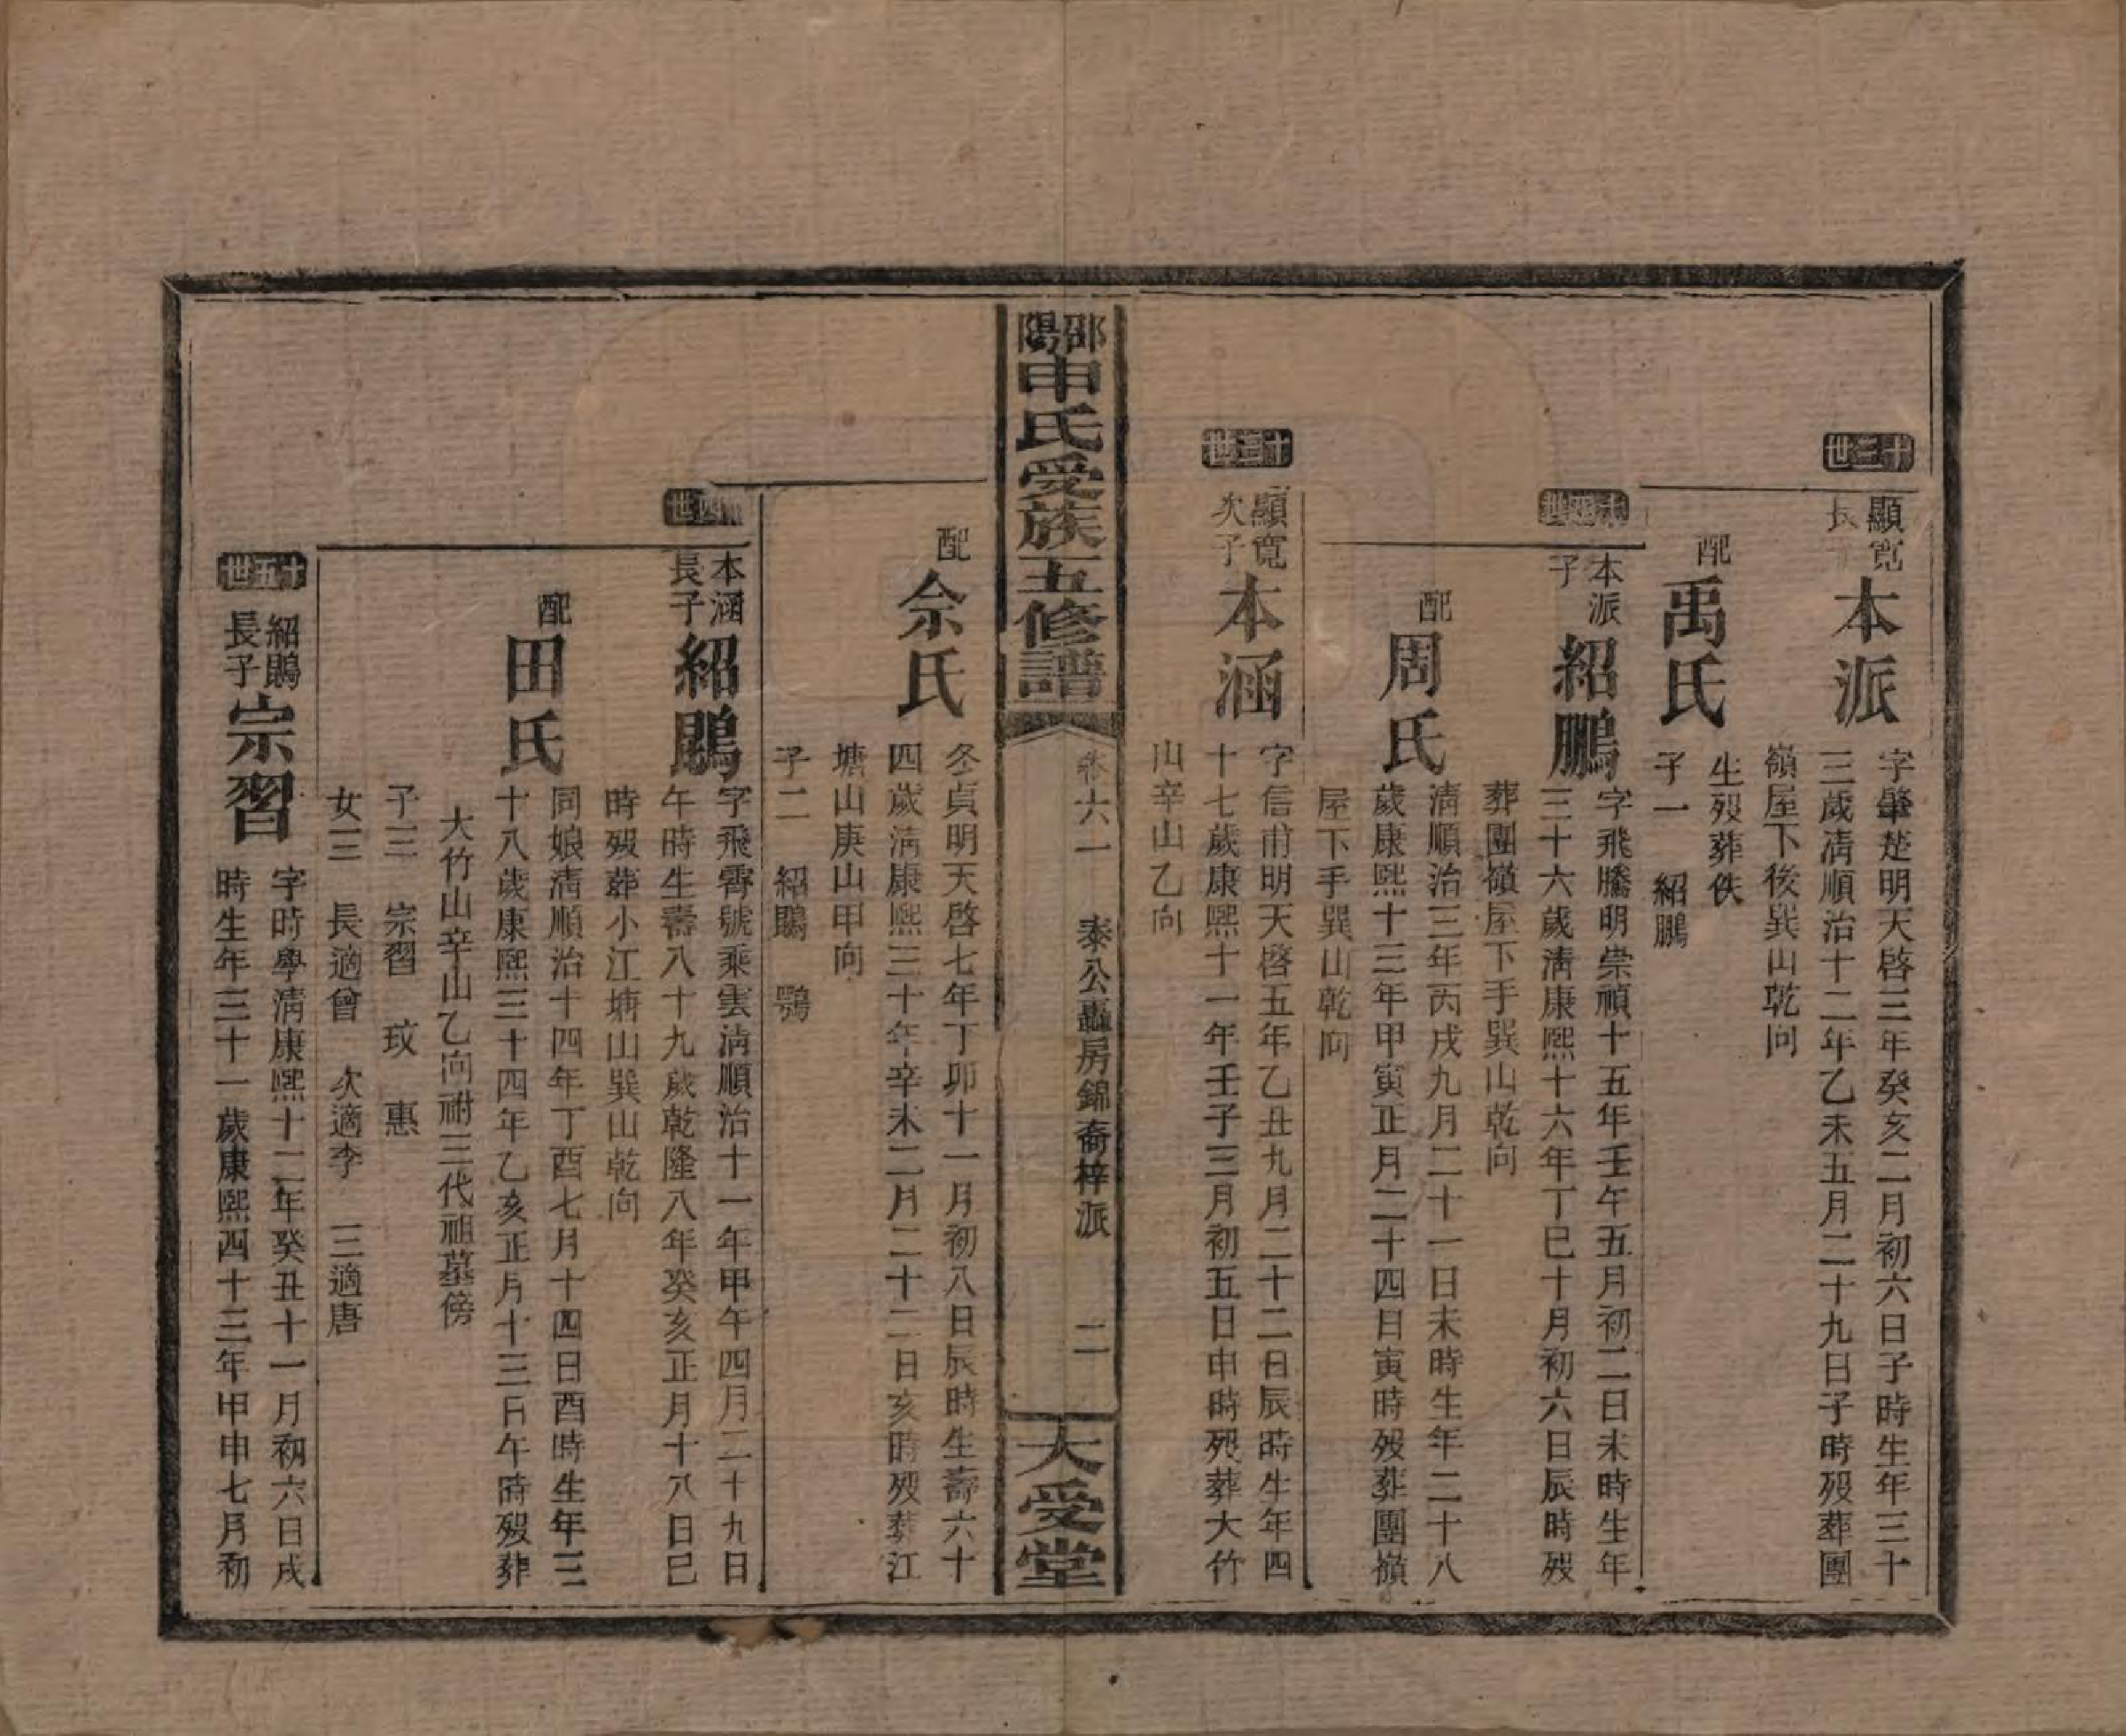 十三世
顯寬
長
本派
字肇楚明天啓三年癸亥二月初六日子時生年三十
三歲淸順治十二年乙未五月二十九日子時歿葬團
嶺屋下後巽山乾向
配
禹氏
生歿葬佚
子一　紹鵬
十四世
本派
子
紹鵬
字飛騰明崇禎十五年壬午五月初二日未時生年
三十六歲淸康熙十六年丁巳十月初六日辰時歿
葬團嶺屋下手巽山乾向
配
周氏
淸順治三年丙戌九月二十一日未時生年二十八
歲康熙十三年甲寅正月二十四日寅時歿葬團嶺
屋下手巽山乾向
十三世
顯寬
次子
本涵
字信甫明天啓五年乙丑九月二十二日辰時生年四
十七歲康熙十一年壬子三月初五日申時歿葬大竹
山辛山乙向
邵陽申氏受族五修譜
卷六一　泰公轟房錦裔梓派　二
大受堂
配
佘氏
冬貞明天啓七年丁卯十一月初八日辰時生壽六十
四歲淸康熙三十年辛未二月二十二日亥時歿葬江
塘山庚山甲向
子二　紹鵰　鶚
十四世
本涵
長子
紹鵰
字飛霄號乘雲淸順治十一年甲午四月二十九日
午時生壽八十九歲乾隆八年癸亥正月十八日巳
時歿葬小江塘山巽山乾向
配
田氏
同娘淸順治十四年丁酉七月十四日酉時生年三
十八歲康熙三十四年乙亥正月十三日午時歿葬
大竹山辛山乙向祔三代祖墓傍
子三　宗習　玟　惠
女三　長適曾　次適李　三適唐
十五世
紹鵰
長子
宗習
字時學淸康熙十二年癸丑十一月初六日戌
時生年三十一歲康熙四十三年甲申七月初